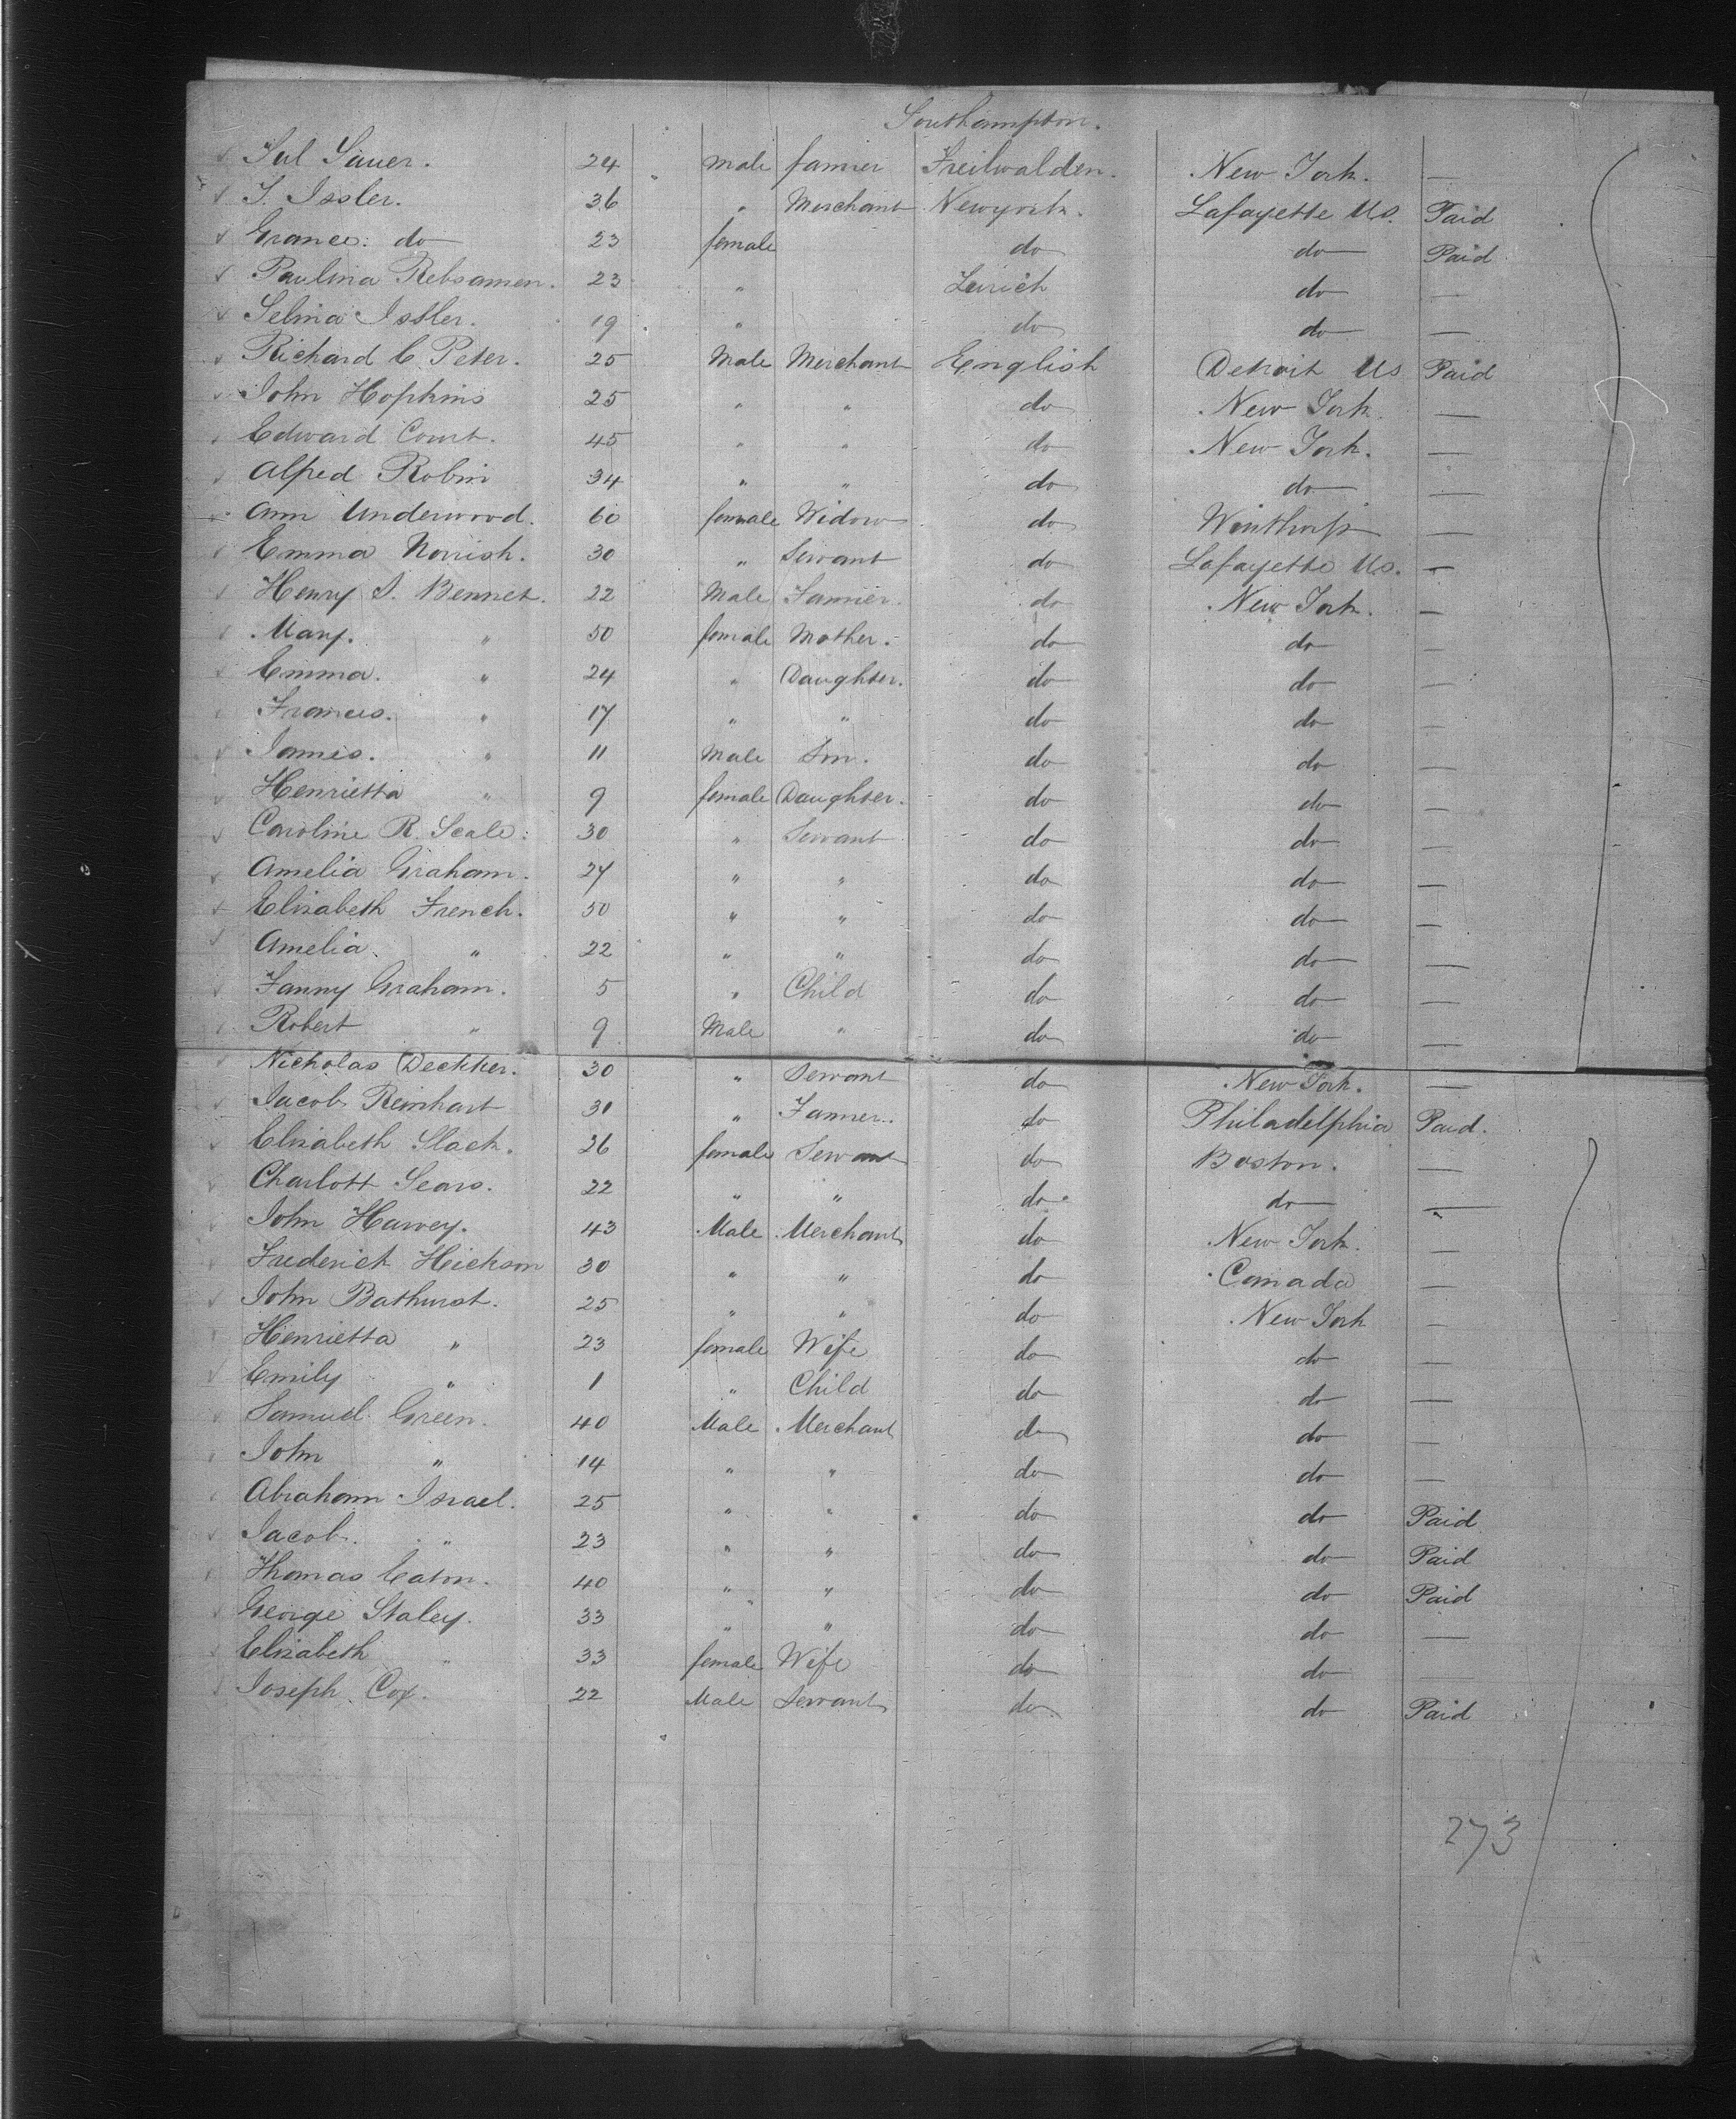 Southampton.
Jul Sauer. 24 Male farmer Freilwalden. New York. —
J. Issler. 36 " Merchant Newyork. Lafayette Us. Paid
Grance: do 23 female do do Paid
Paulina Rebsamen. 23 " Zurich do —
Selina Issler. 19 " do do —
Richard C Peter. 25 Male Merchant English Detroit Us Paid
John Hopkins 25 " " do New York. —
Edward Court. 45 " " do New York. —
Alfred Robin 34 " " do do —
Ann Underwood. 60 female Widow do Winthrop —
Emma Norrish. 30 " Servant do Lafayette Us. —
Henry S. Bennet. 22 Male Farmer. do New York. —
Mary. " 50 female Mother. do do —
Emma. " 24 " Daughter. do do —
Frances. " 17 " " do do —
James. " 11 Male Son. do do —
Henrietta " 9 female Daughter. do do —
Caroline R. Seale: 30 " Servant do do —
Amelia Graham. 27 " " do do —
Elisabeth French. 50 " " do do —
Amelia. " 22 " " do do —
Fanny Graham. 5 " Child do do —
Robert " 9 Male " do do —
Nicholas Deckker. 30 " Servant do New York. —
Jacob Reinhart 31 " Farmer. do Philadelphia Paid.
Elisabeth Slack. 26 female Servant do Boston. —
Charlott Sears. 22 " " do do —
John Harvey. 43 Male Merchant do New York. —
Frederick Hickson 30 " " do Canada —
John Bathurst. 25 " " do New York —
Henrietta " 23 female Wife do do —
Emily " 1 " Child do do —
Samuel Green. 40 Male Merchant do do —
John " 14 " " do do —
Abraham Israel. 25 " " do do Paid
Jacob. " 23 " " do do Paid
Thomas Eaton. 40 " " do do Paid
George Staley. 33 " " do do —
Elisabeth " 33 female Wife do do —
Joseph Cox. 22 Male Servant do do Paid
273